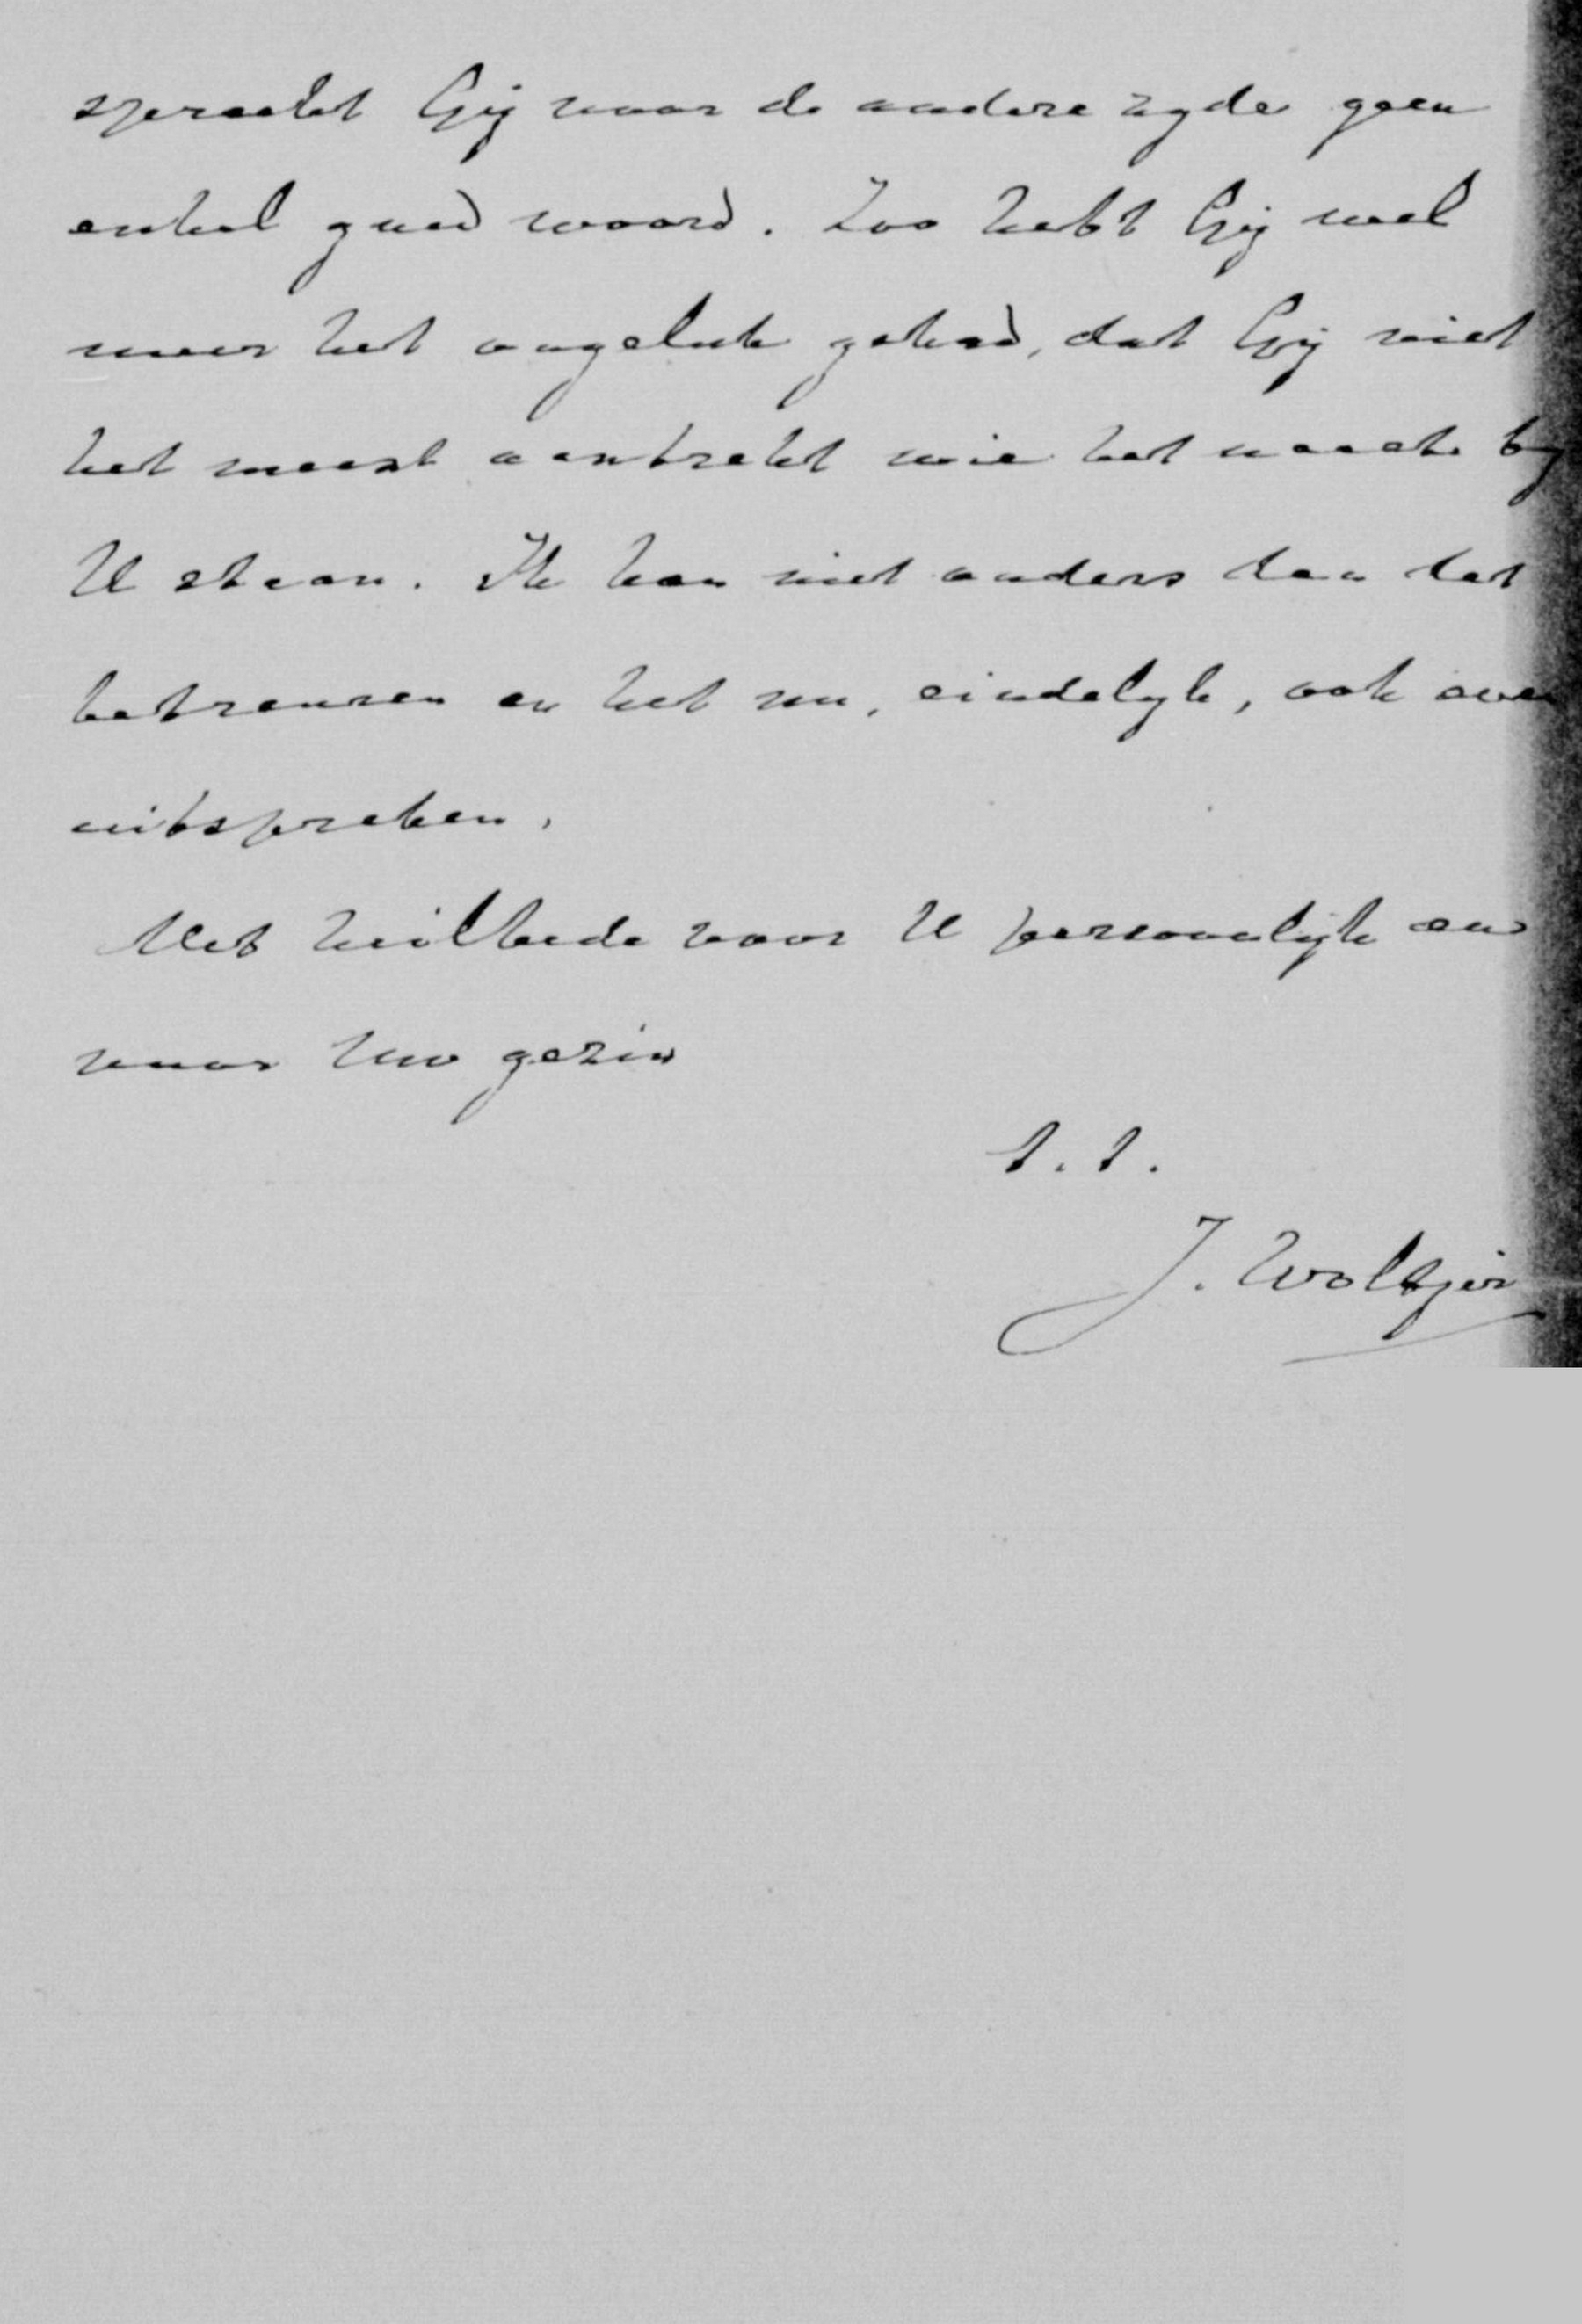 spraakt Gij voor de andere zyde geen
enkel goed woord. Zoo hebt Gij wel
meer het ongeluk gehad, dat Gij niet
het meest aantrekt wie het naast by
U staan. Ik kan niet anders dan dat
betreuren en het nu, eindelyk, ook even
uitspreken.
Met heilbede voor U persoonlijk en
voor Uw gezin
t.t.
J. Woltjer